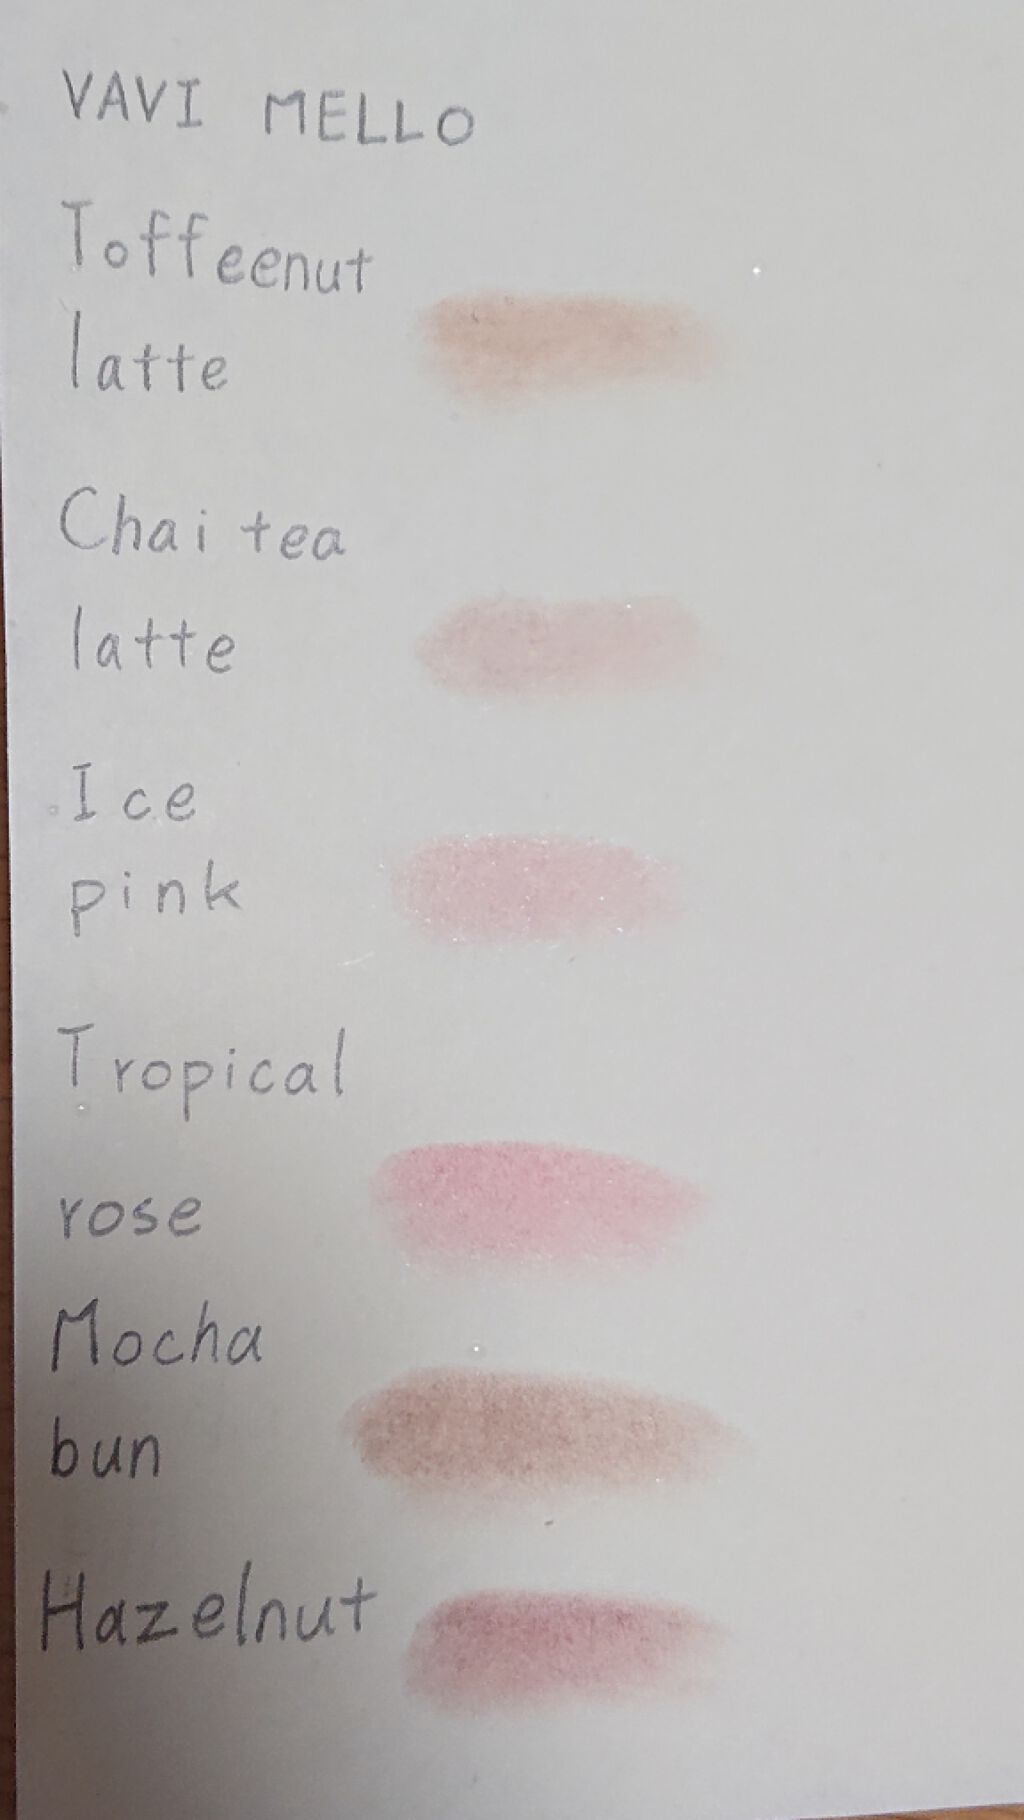 VAVI MELLO
Toffeenut
latte
Chai tea
latte
Ice
pink
Tropical
rose
Mocha
bun
Hazelnut